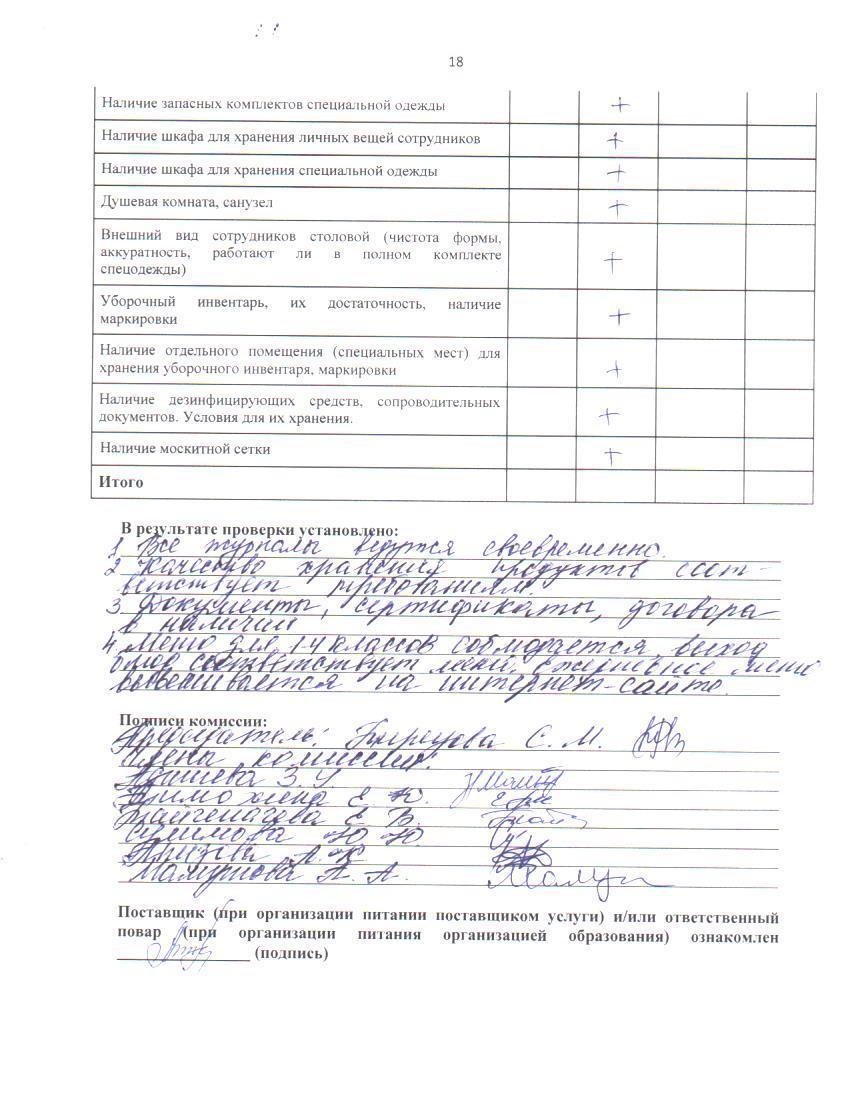 18
Наличие запасных комплектов специальной одежды +
Наличие шкафа для хранения личных вещей сотрудников +
Наличие шкафа для хранения специальной одежды +
Душевая комната, санузел +
Внешний вид сотрудников столовой (чистота формы,
аккуратность, работают ли в полном комплекте
спецодежды) +
Уборочный инвентарь, их достаточность, наличие
маркировки +
Наличие отдельного помещения (специальных мест) для
хранения уборочного инвентаря, маркировки +
Наличие дезинфицирующих средств, сопроводительных
документов. Условия для их хранения. +
Наличие москитной сетки +
Итого
В результате проверки установлено:
1. Все журналы ведутся своевременно.
2. Качество хранения продуктов соот-
ветствует требованиям.
3. Документы, сертификаты, договора
в наличии
4. Меню для 1-4 классов соблюдается, выход
блюд соответствует меню, ежедневное меню
вывешивается на интернет-сайте.
Подписи комиссии:
Председатель: С. М.
Члены комиссии:
З. У.
Е. Ю.
Е. В.
Ю. Ю.
А. К.
А. А.
Поставщик (при организации питании поставщиком услуги) и/или ответственный
повар (при организации питания организацией образования) ознакомлен
(подпись)